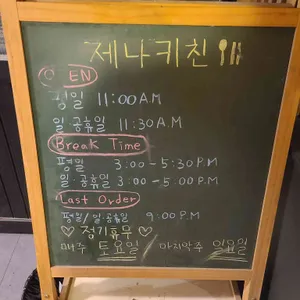 제나키친
OPEN
평일 11:00 A.M
일·공휴일 11:30 A.M
Break Time
평일 3:00 - 5:30 P.M
일·공휴일 3:00 - 5:00 P.M
Last Order
평일/일·공휴일 9:00 P.M
♡ 정기휴무 ♡
매주 토요일 / 마지막주 일요일